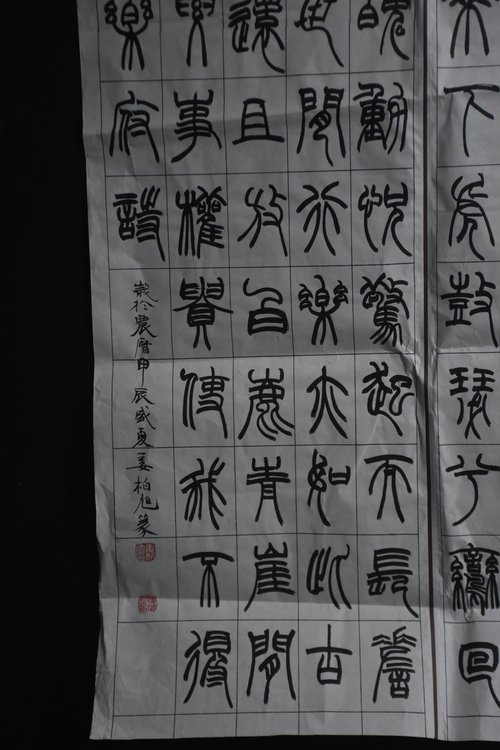 來下虎鼓瑟兮鸞回
魄動怳驚起而長嗟
世間行樂亦如此古
還且放白鹿青崖間
腰事權貴使我不得
樂府詩
歲於農曆甲辰盛夏姜柏旭篆